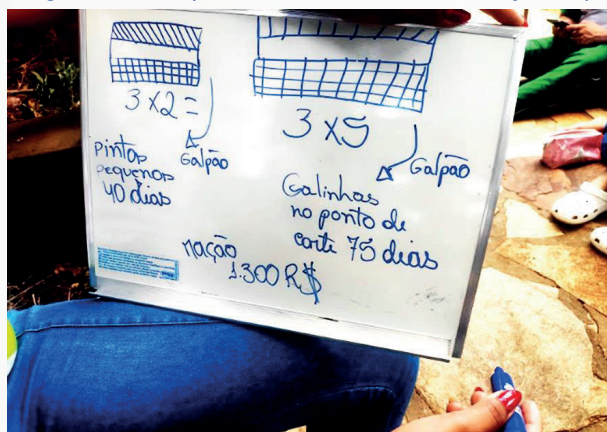 3 X 2 =
Galpão
pintos
pequenos
40 dias
3 X 5
Galpão
Galinhas
no ponto de
corte 75 dias
ração
1.300 R$